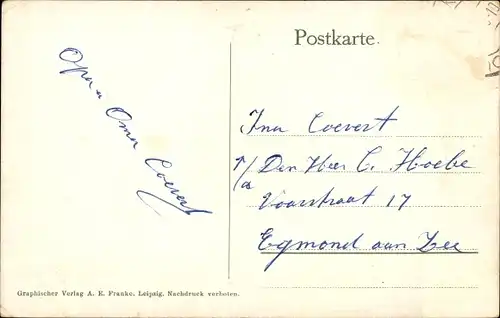 Postkarte.
Opa u Oma Coevert
Ina Coevert
p/a Den Heer C. Hoebe
Voorstraat 17
Egmond aan Zee
Graphischer Verlag A. K. Franke, Leipzig. Nachdruck verboten.